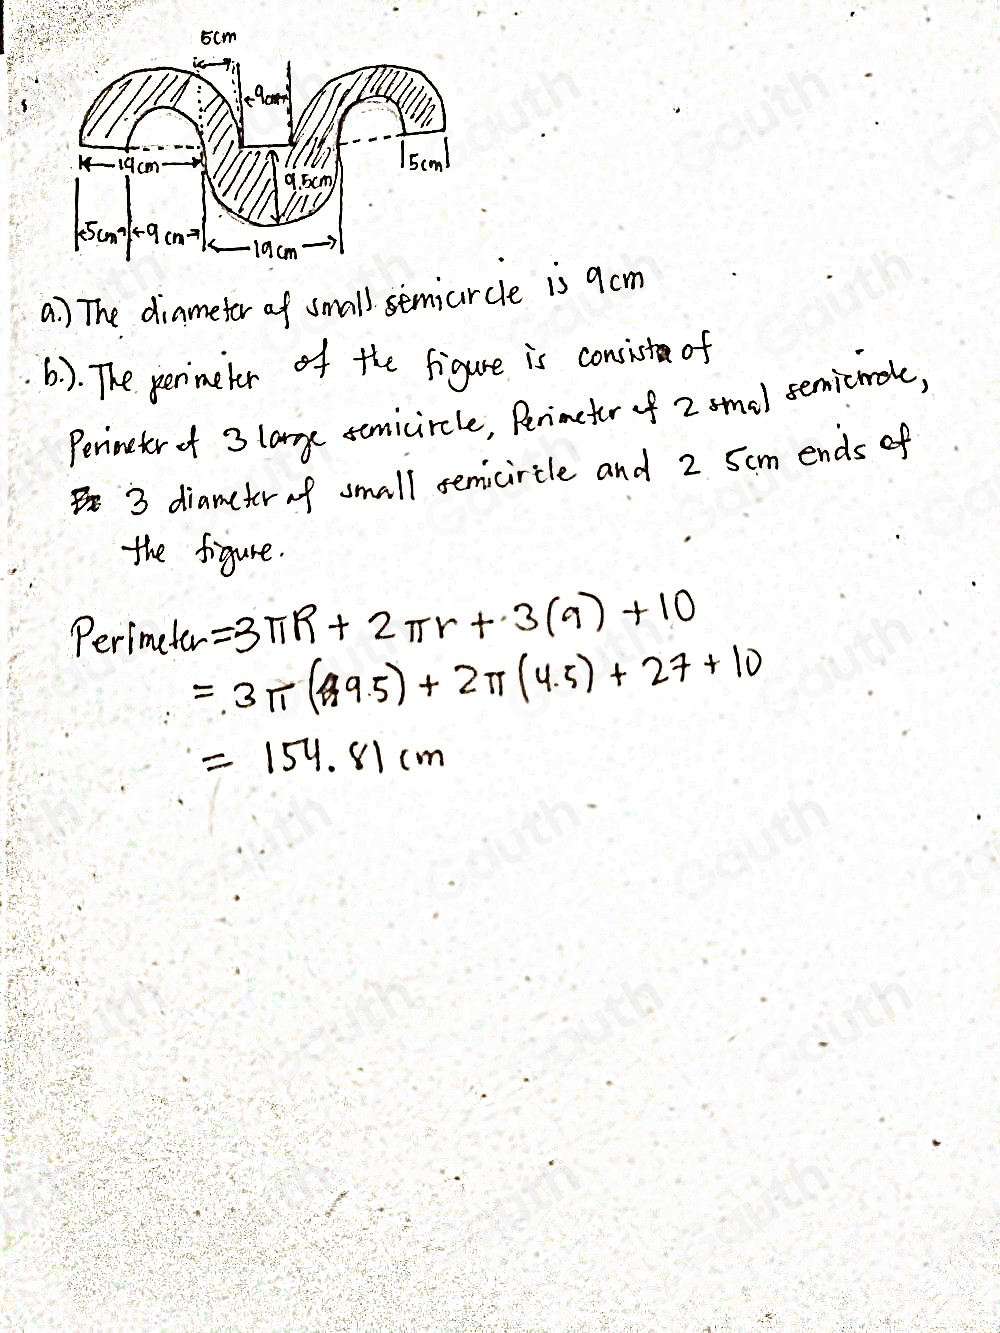 5cm
9cm
19cm
9.5cm
5cm
5cm
9cm
19cm
a.) The diameter of small semicircle is 9cm
b.). The perimeter of the figure is consist of
Perimeter of 3 large semicircle, Perimeter of 2 smal semicircle,
3 diameter of small semicircle and 2 5cm ends of
the figure.
Perimeter = 3πR + 2πr + 3(9) + 10
= 3π(9.5) + 2π(4.5) + 27 + 10
= 154.81cm
Gauth